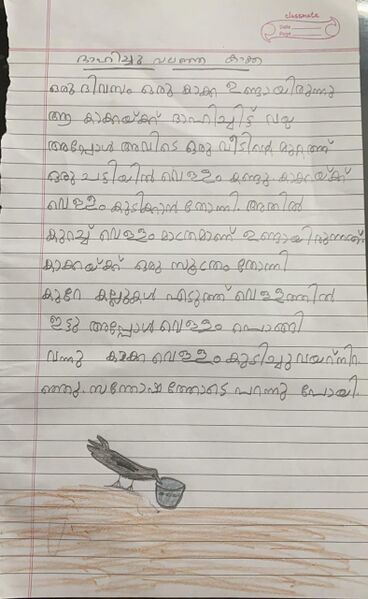 classmate
Date
Page
ദാഹിച്ചു വലഞ്ഞ കാക്ക
ഒരു ദിവസം ഒരു കാക്ക ഉണ്ടായിരുന്നു
ആ കാക്കയ്ക്ക് ദാഹിച്ചിട്ട് വയ്യ
അപ്പോൾ അവിടെ ഒരു വീടിന്റെ മുറ്റത്ത്
ഒരു ചട്ടിയിൽ വെള്ളം കണ്ടു. കാക്കയ്ക്ക്
വെള്ളം കുടിക്കാൻ തോന്നി. അതിൽ
കുറച്ച് വെള്ളം മാത്രമാണ് ഉണ്ടായിരുന്നത്.
കാക്കയ്ക്ക് ഒരു സൂത്രം തോന്നി
കുറേ കല്ലുകൾ എടുത്ത് വെള്ളത്തിൽ
ഇട്ടു അപ്പോൾ വെള്ളം പൊങ്ങി
വന്നു കാക്ക വെള്ളം കുടിച്ചു വയറ് നിറ
ഞ്ഞു. സന്തോഷത്തോടെ പറന്നു പോയി.